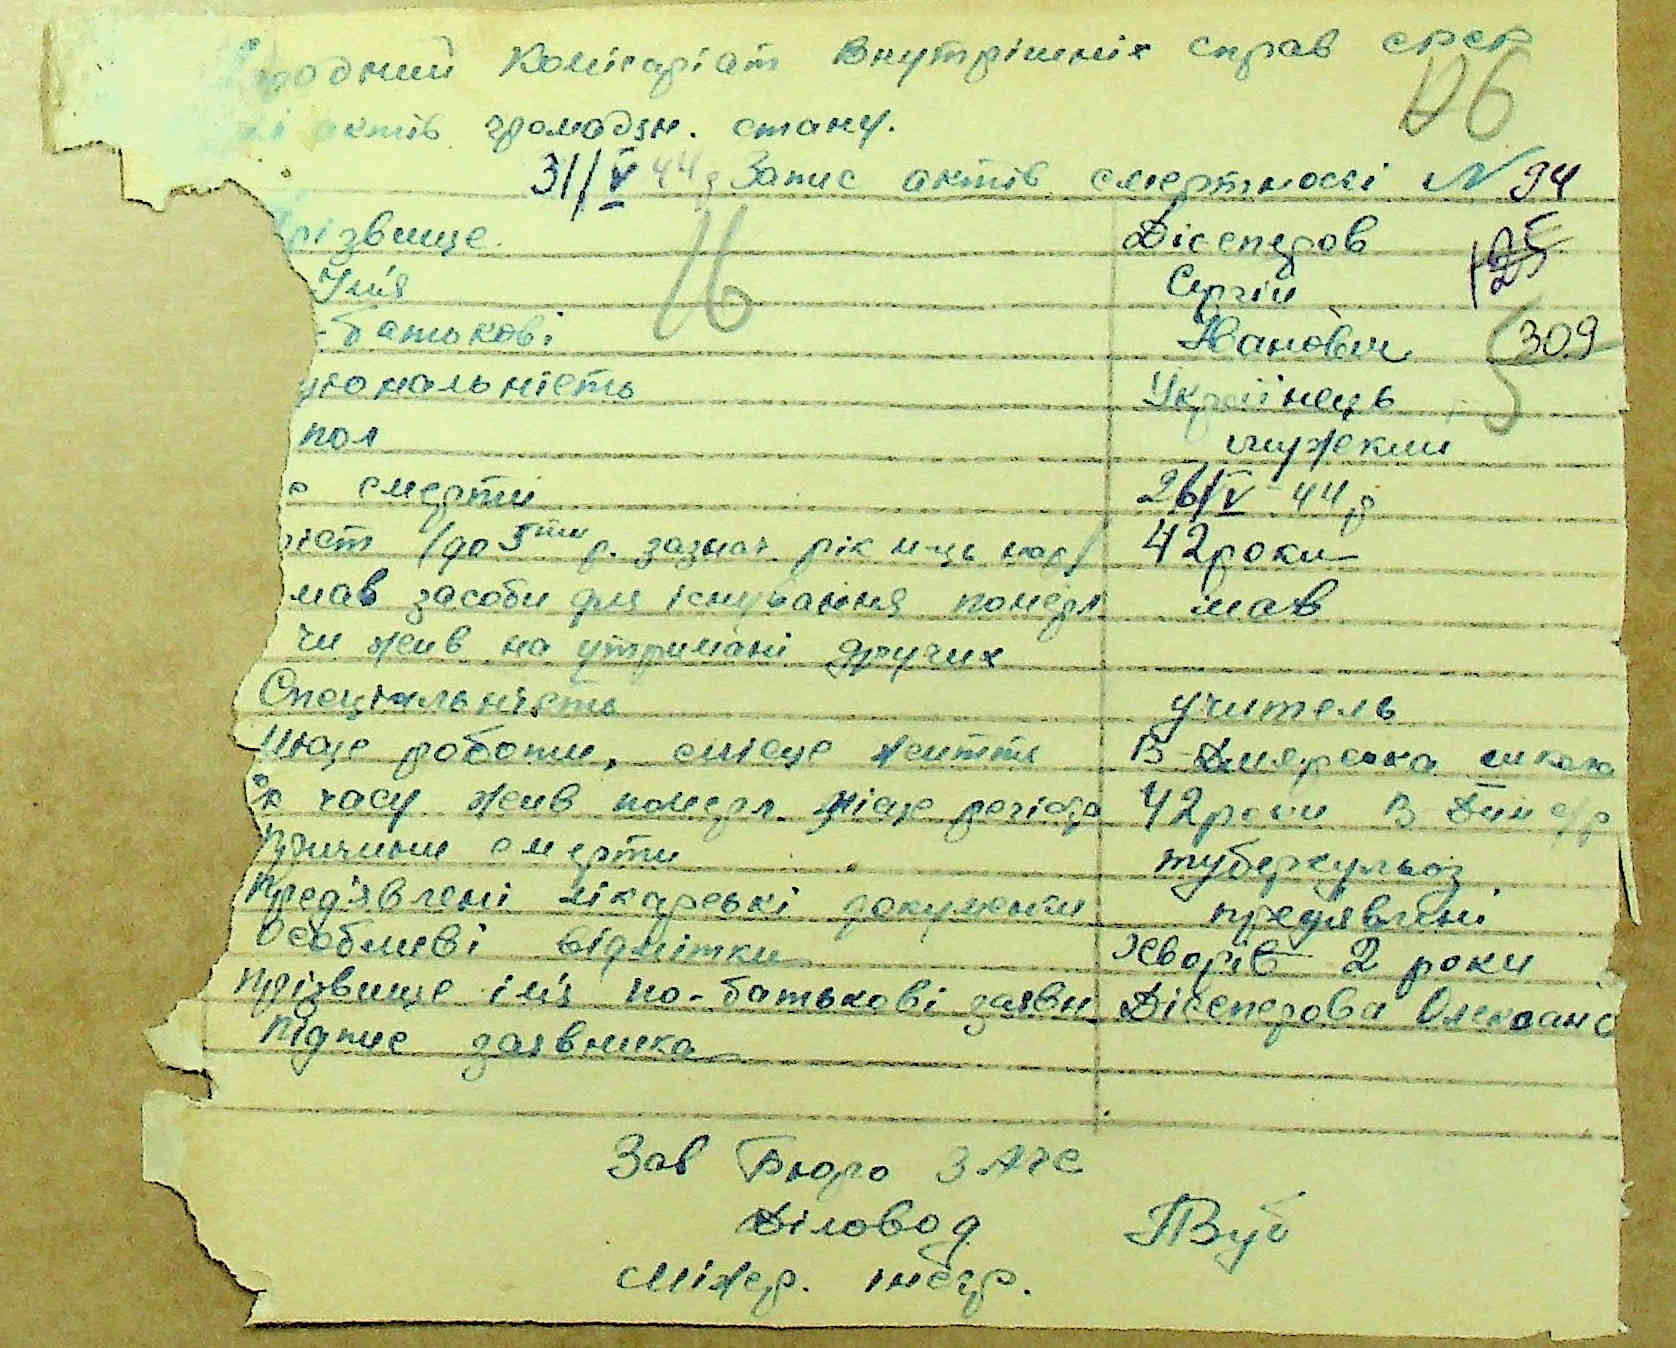 родний Комісаріат Внутрішніх справ СРСР
актів громадян. стану.
31/V 44 р Запис актів смертності N 94
різвище. Дісеперов
Ім'я Сергій
-батькові Іванович 309
ціональність Українець
пол мужекий
смерти 26/V - 44 р
(до 5ти р. зазнач. рік м-ць нар) 42 роки
мав засоби для існування померл. мав
чи жив на утримані других
Спеціальність учитель
місце роботи, місце життя В-Димерська школа
часу жив померл. місце 42 роки В Димер
Причини смерти туберкульоз
Пред'явлені лікарські документи предявлені
Особливі відмітки Хворів 2 роки
Прізвище ім'я по-батькові заявн Дісеперова Олександ
Підпис заявника
Зав Бюро ЗАГС
Діловод